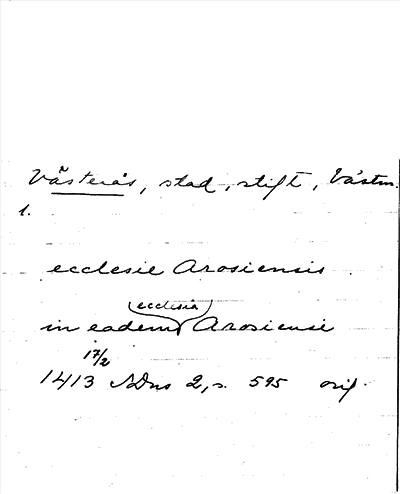 Västerås, stad, stift, Västm.
1.
ecclesie Arosiensis
ecclesia
in eadem Arosiensi
17/2
1413 SDns 2, s. 595 orig.